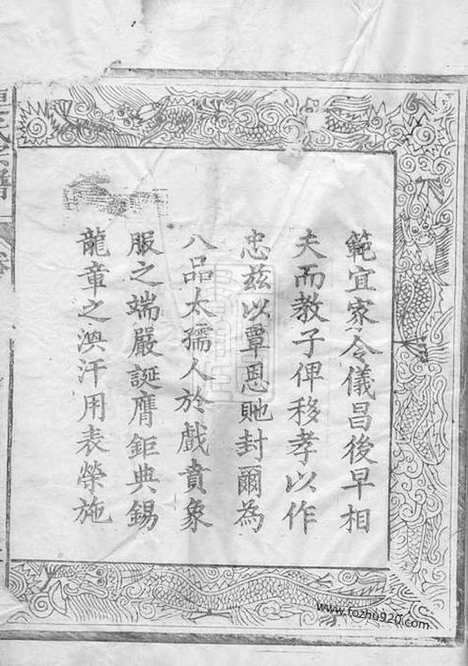 範宜家令儀昌後早相
夫而教子俾移孝以作
忠茲以覃恩貤封爾為
八品太孺人於戲賁象
服之端嚴誕膺鉅典錫
龍章之渙汗用表榮施
氏宗譜
www.tozhu920.com